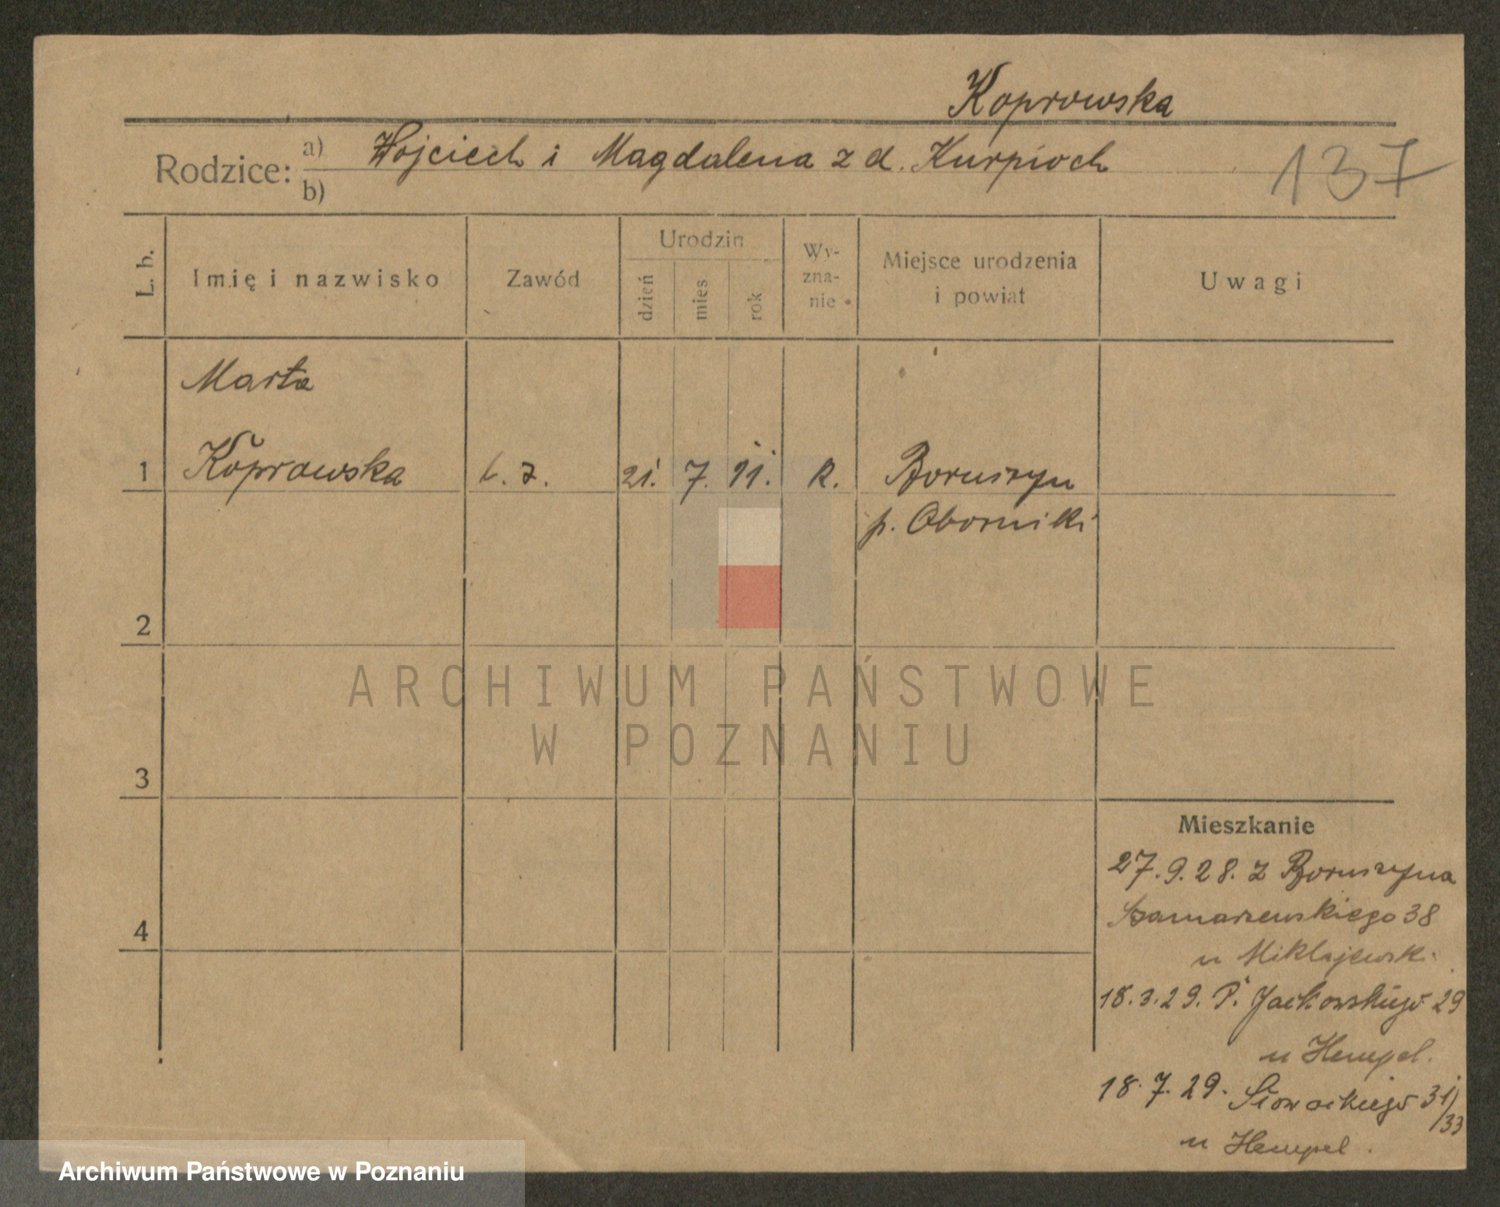 Koprowska
Rodzice: a) Wojciech i Magdalena z d. Kurpioch
b)
137
L. b.
Imię i nazwisko
Zawód
Urodzin
dzień
mies
rok
Wy-
zna-
nie
Miejsce urodzenia
i powiat
Uwagi
Marta
1 Koprowska 21. 7. 11. R. Boruszyn
p. Oborniki
2
ARCHIWUM PAŃSTWOWE
W POZNANIU
3
Mieszkanie
27.9.28. z Boruszyna
Szamarzewskiego 38
u Miklejewsk.
4
18.3.29. P. Jackowskiego 29
u Hempel.
18.7.29. Słowackiego 31/33
u Hempel.
Archiwum Państwowe w Poznaniu